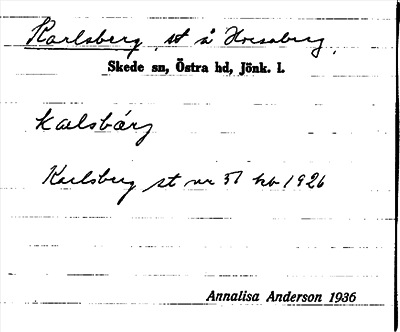 Karlsberg, st å Horsaberg,
Skede sn, Östra hd, Jönk. l.
kalsbárj
Karlsberg st nr 57 kb 1926
Annalisa Anderson 1936